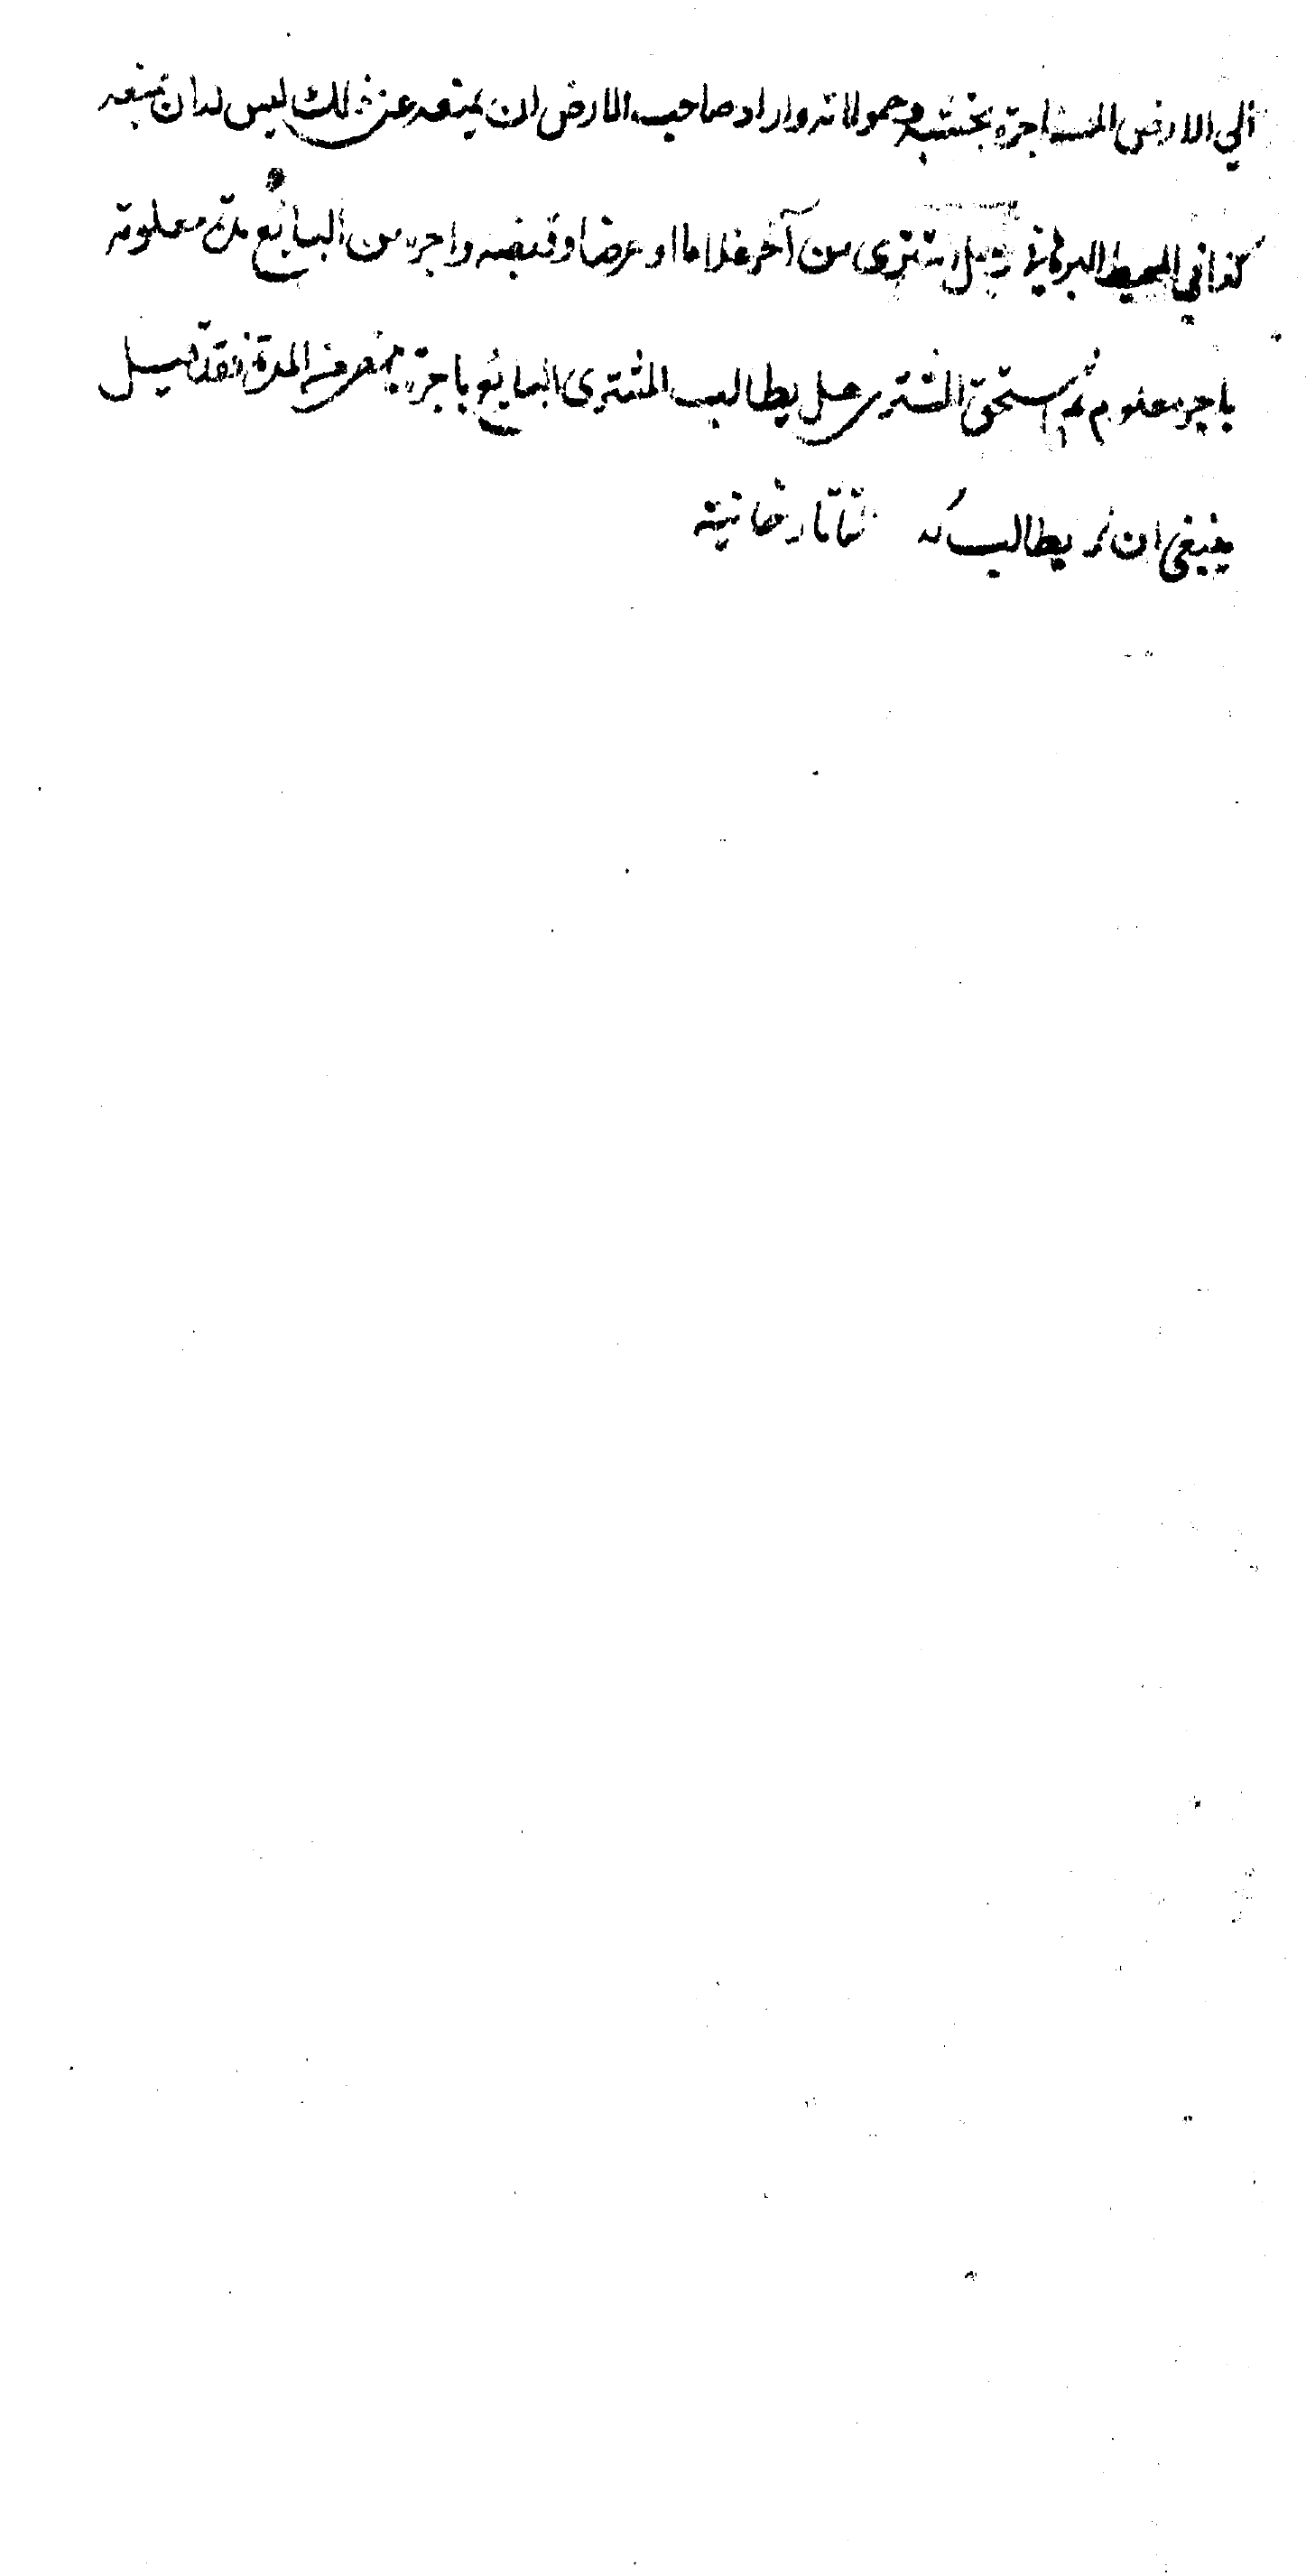 الي الارض المستاجرة بخشبه وحمولاته واراد صاحب الارض ان يمنعه عن ذلك ليس له ان يمنعه
كذا في المحيط البرهاني رجل اشترى من آخر غلاما او عرضا وقبضه واجره من البايع مدة معلومة
باجر معلوم ثم استحق المشترى هل يطالب المشترى البايع باجرة المدة فقد قيل
ينبغي ان لا يطالب له تتارخانية